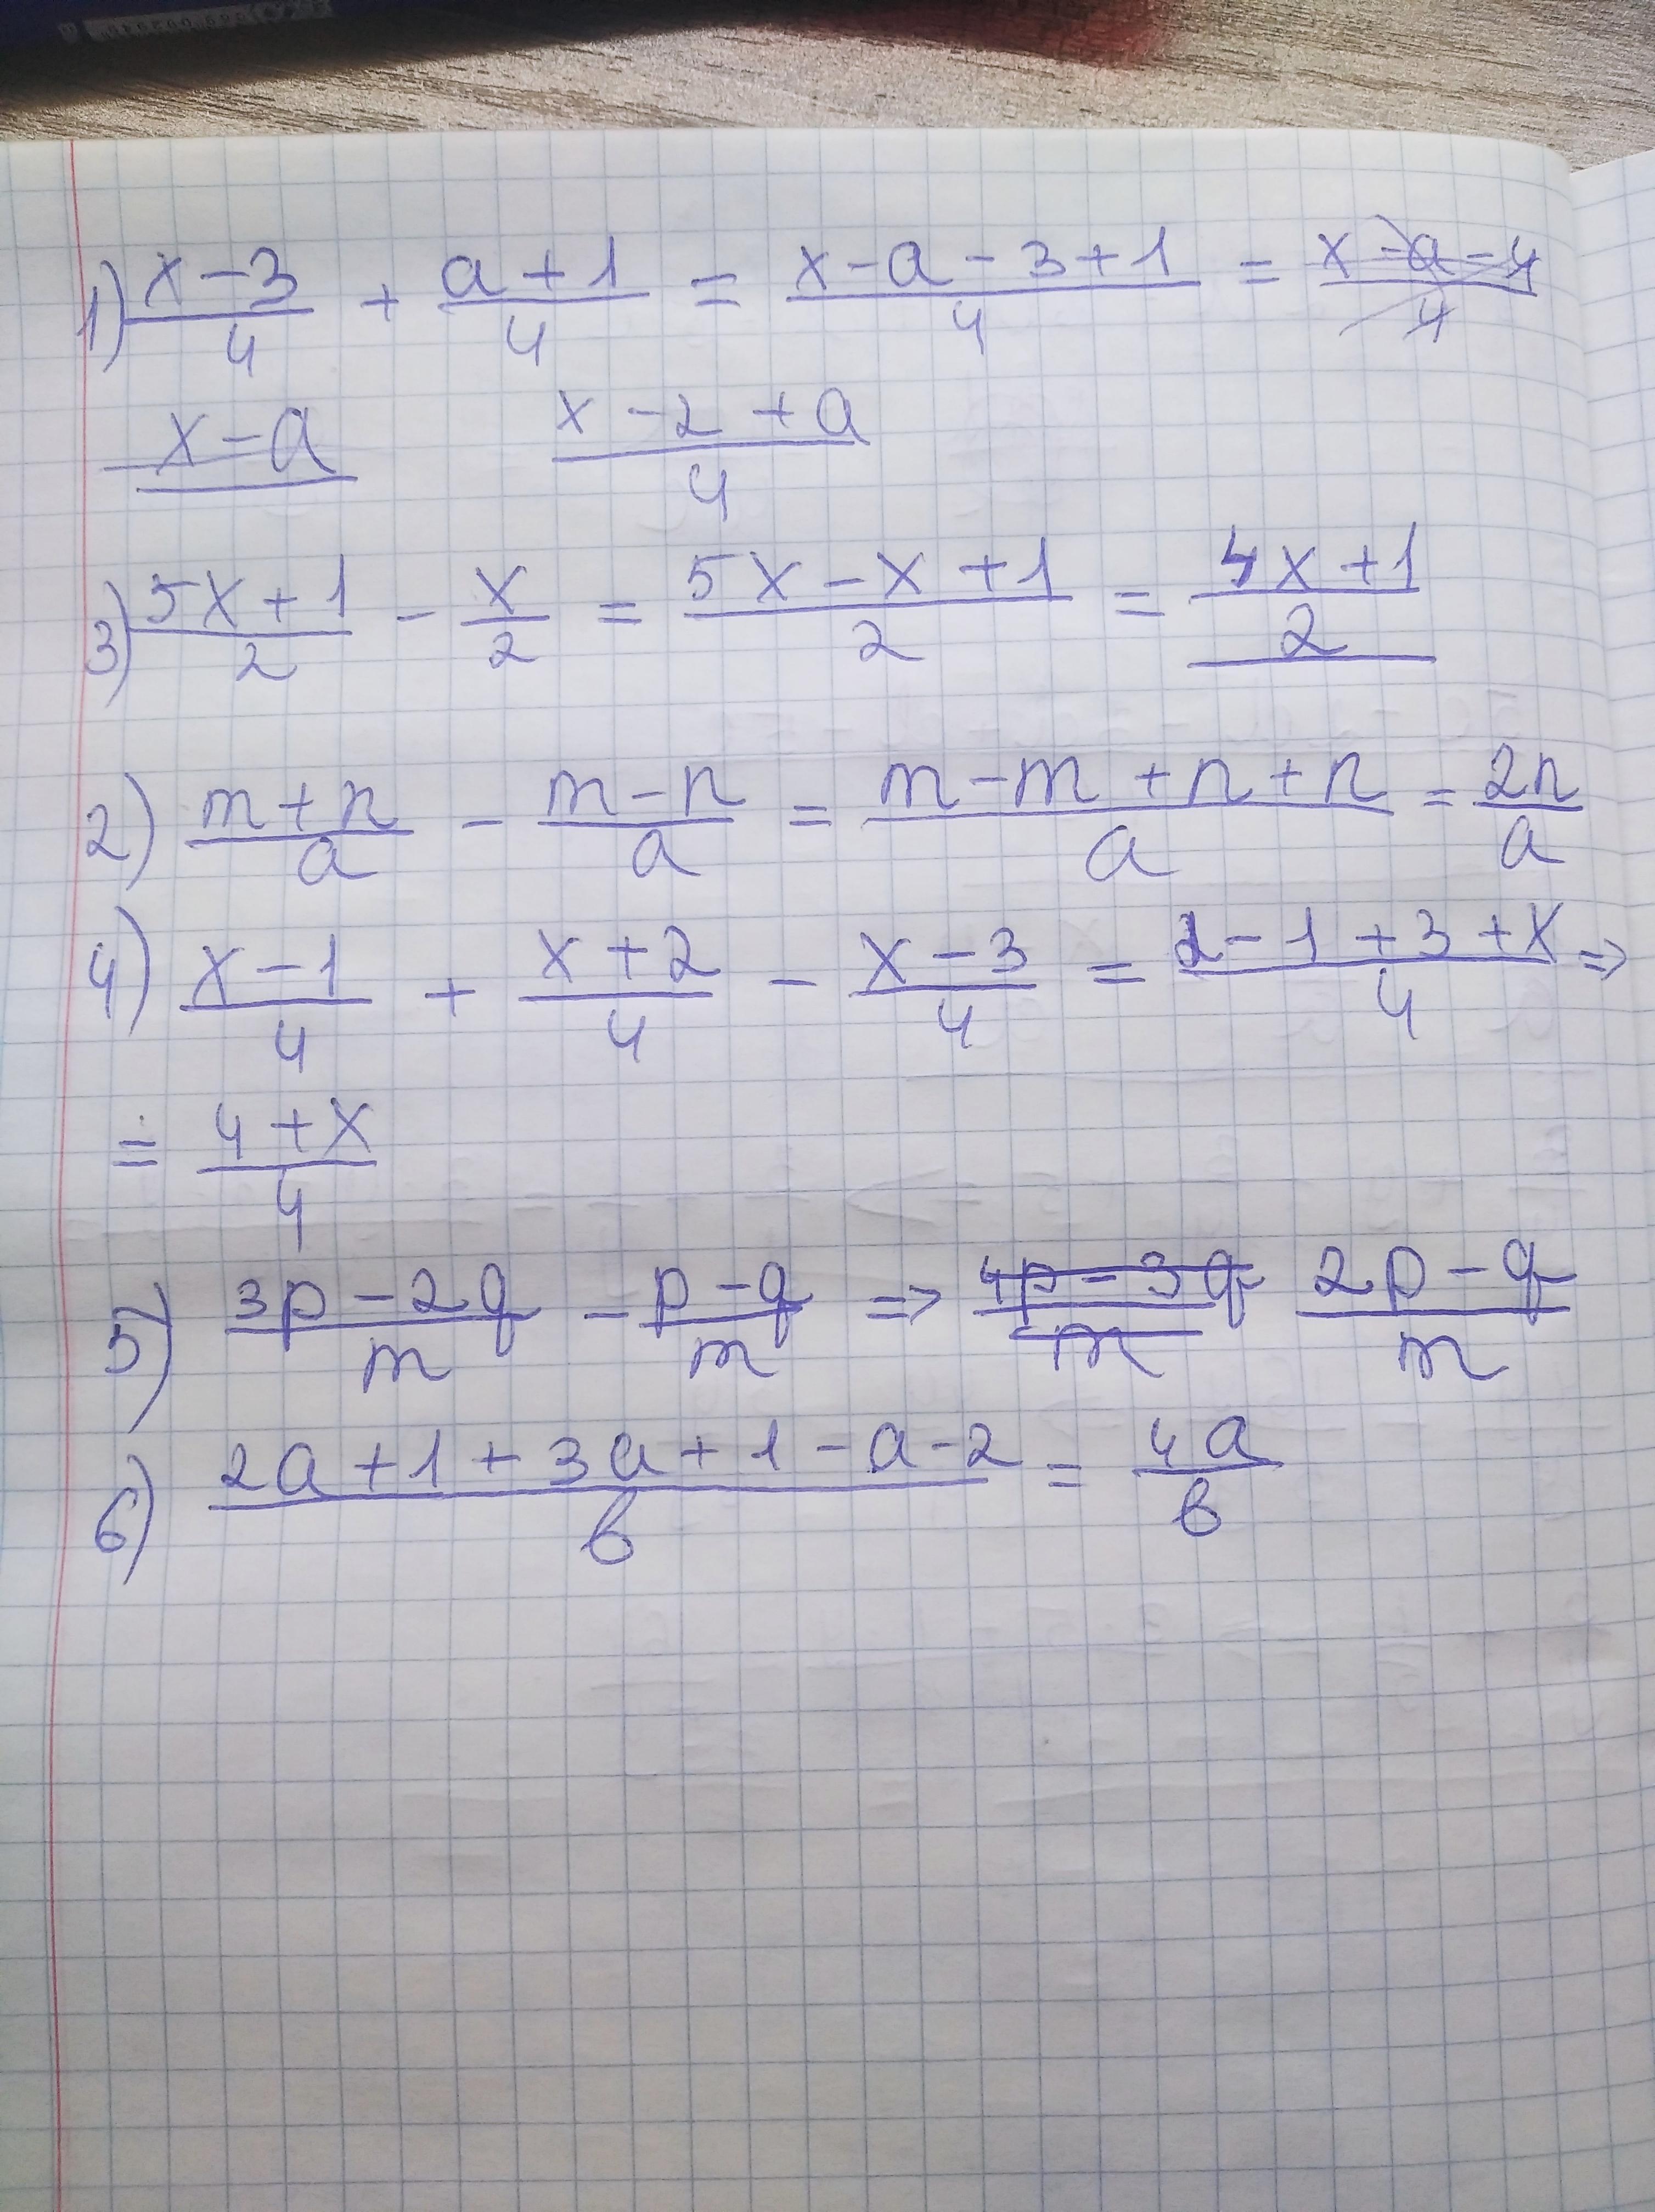 1) (x-3)/4 + (a+1)/4 = (x-a-3+1)/4 = (x-a-4)/4
x-a (x-2+a)/4
3) (5x+1)/2 - x/2 = (5x-x+1)/2 = (4x+1)/2
2) (m+n)/a - (m-n)/a = (m-m+n+n)/a = 2n/a
4) (x-1)/4 + (x+2)/4 - (x-3)/4 = (2-1+3+x)/4 =>
= (4+x)/4
5) (3p-2q)/m - (p-q)/m => (4p-3q)/m (2p-q)/m
6) (2a+1+3a+1-a-2)/b = 4a/b